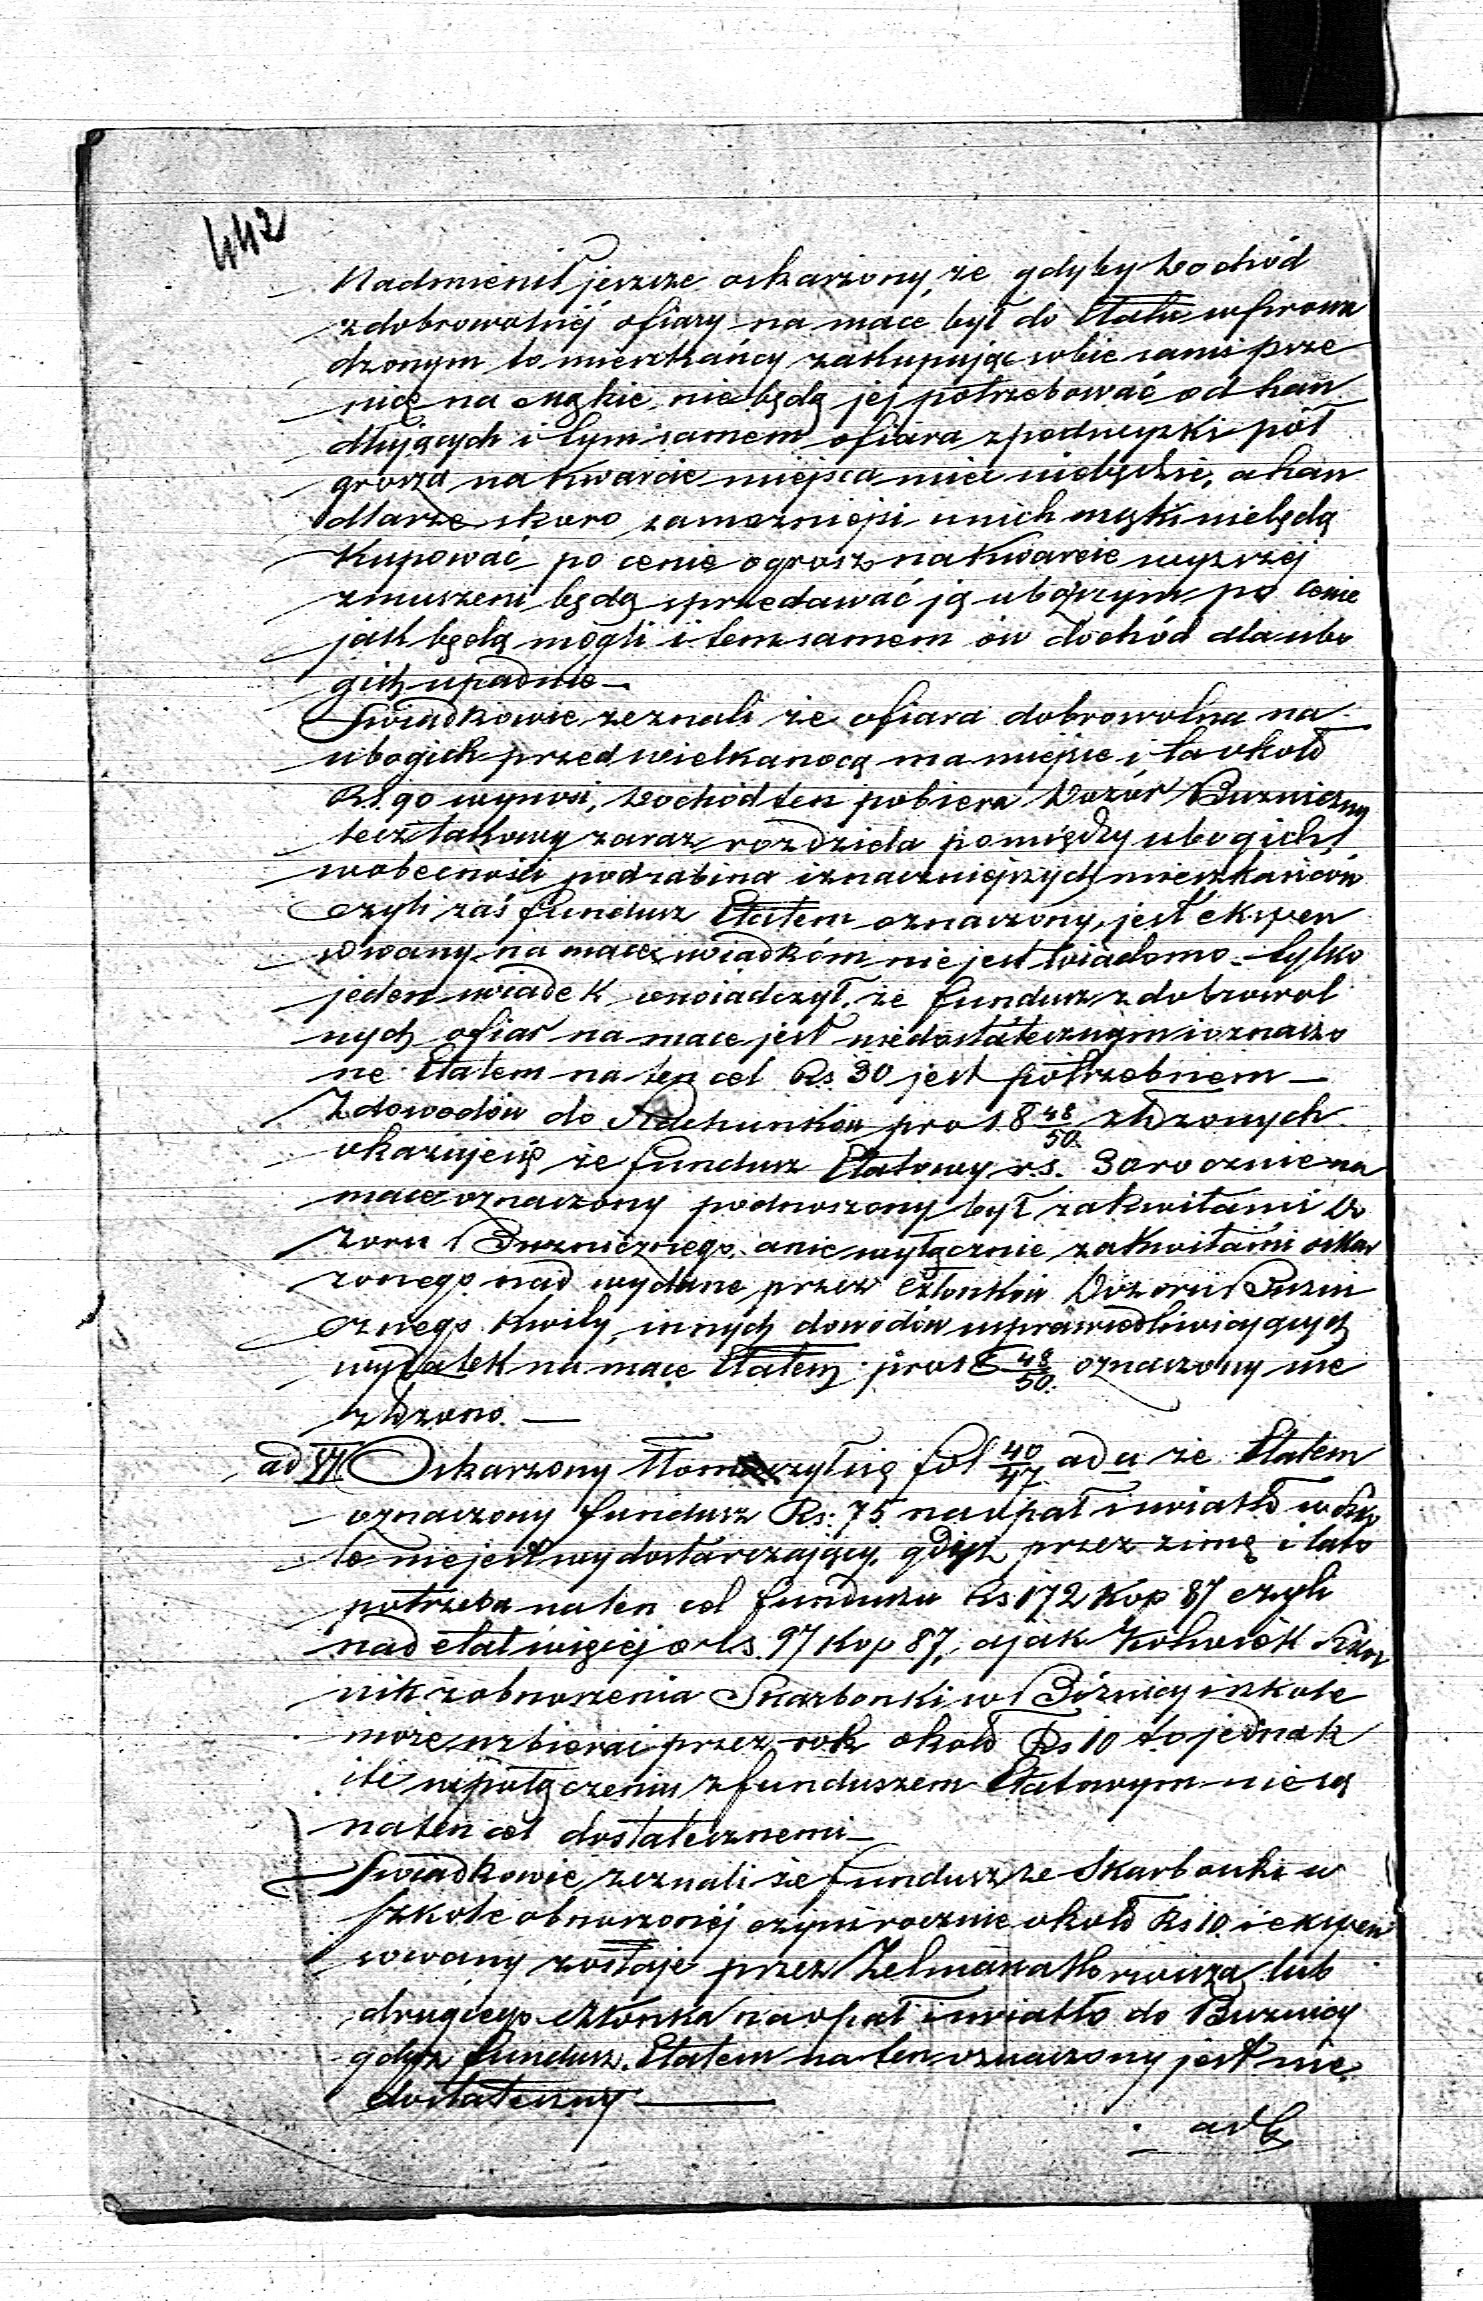 442
Nadmienił jeszcze oskarżony, że gdyby dochód
z dobrowolnéj ofiary na mace był do Etatu wprowa
dzonym to mieszkańcy zakupując sobie sami psze
nicę na mąkie, nie będą jej potrzebować od han
dlujących i tym samem ofiara z podwyżki pół
grosza na kwarcie miejsca mieć niebędzie, a han
dlarze skoro zamożniejsi u nich mąki niebędą
kupować po cenie o grosz na kwarcie wyższéj
zmuszeni będą sprzedawać ją uboższym po cenie
jak będą mogli i temsamem ów dochód dla ubo
gich upadnie —
Swiadkowie zeznali że ofiara dobrowolna na
ubogich przed wielkanocą ma miejsce i ta około
Rs. 90 wynosi, dochód ten pobiera Dozór Buzniczny
lecz takowy zaraz rozdziela pomiędzy ubogich
w obecności podrabina i znaczniejszych mieszkańców
czyli zaś fundusz Etatem oznaczony, jest ekspen
sowany na mace swiadkóm nie jest wiadomo – tylko
jeden swiadek oswiadczył, że fundusz z dobrowol
nych ofiar na mace jest niedostatecznym i oznaczo
ne Etatem na ten cel Rs. 30 jest potrzebnem —
Z dowodów do Rachunków pro 18 48/50 złożonych
okazuje się że fundusz Etatowy rs. 30 rocznie na
mace oznaczony podnoszony był za kwitami Do
zoru Buznicznego, a nie wyłącznie za kwitami oskar
żonego nad wydane przez Członków Dozoru Buzni
cznego kwity, innych dowodów usprawiedliwiających
wydatek na mace Etatem pro 18 48/50 oznaczony nie
złożono. —
ad VI Oskarżony tłomaczył się fol 40/47 ad u że Etatem
oznaczony fundusz Rs. 75 na opał i swiatło w Szko
le nie jest wydostarczający, gdyż przez zimę i lato
potrzeba na ten cel funduszu Rs 172 Kop 87 czyli
nad etat więcéj o rs. 97 Kop 87, a jak kolwiek Szkol
nik z obnoszenia Skarbonki w Bóżnicy i szkole
może uzbierać przez rok około Rs 10 to jednak
i te w połączeniu z funduszem Etatowym nie są
na ten cel dostatecznemi —
Swiadkowie zeznali że fundusz ze Skarbonki w
szkole obnoszonéj czyni rocznie około Rs 10. i ekspen
sowany zostaje przez Zelmana lub
drugiego członka na opał i swiatło do Buznicy
gdyż fundusz Etatem na ten oznaczony jest nie
dostateczny —
ad